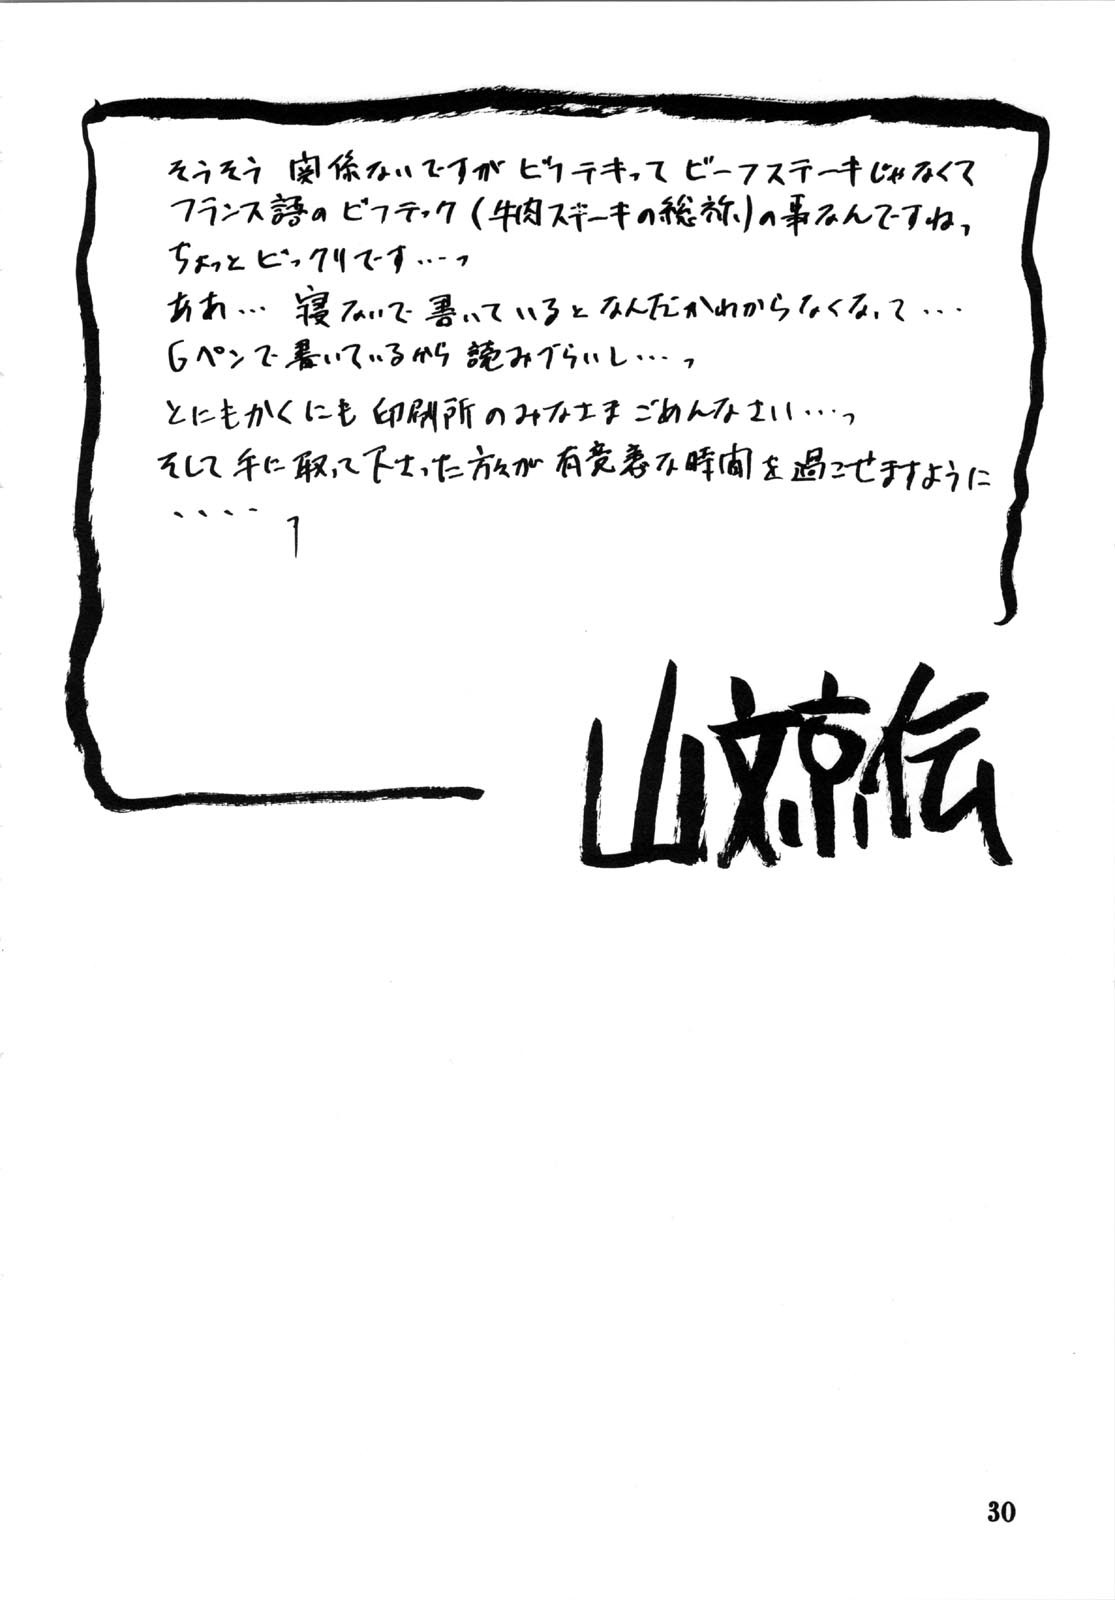 そうそう 関係ないですが ビフテキって ビーフステーキじゃなくて
フランス語のビフテック(牛肉ステーキの総称)の事なんですねっ
ちょっとビックリです…っ
ああ… 寝ないで書いているとなんだかわからなくなって…
Gペンで書いているから読みづらいし…っ
とにもかくにも印刷所のみなさまごめんなさい…っ
そして手に取って下さった方々が有意義な時間を過ごせますように
....
山文京伝
30